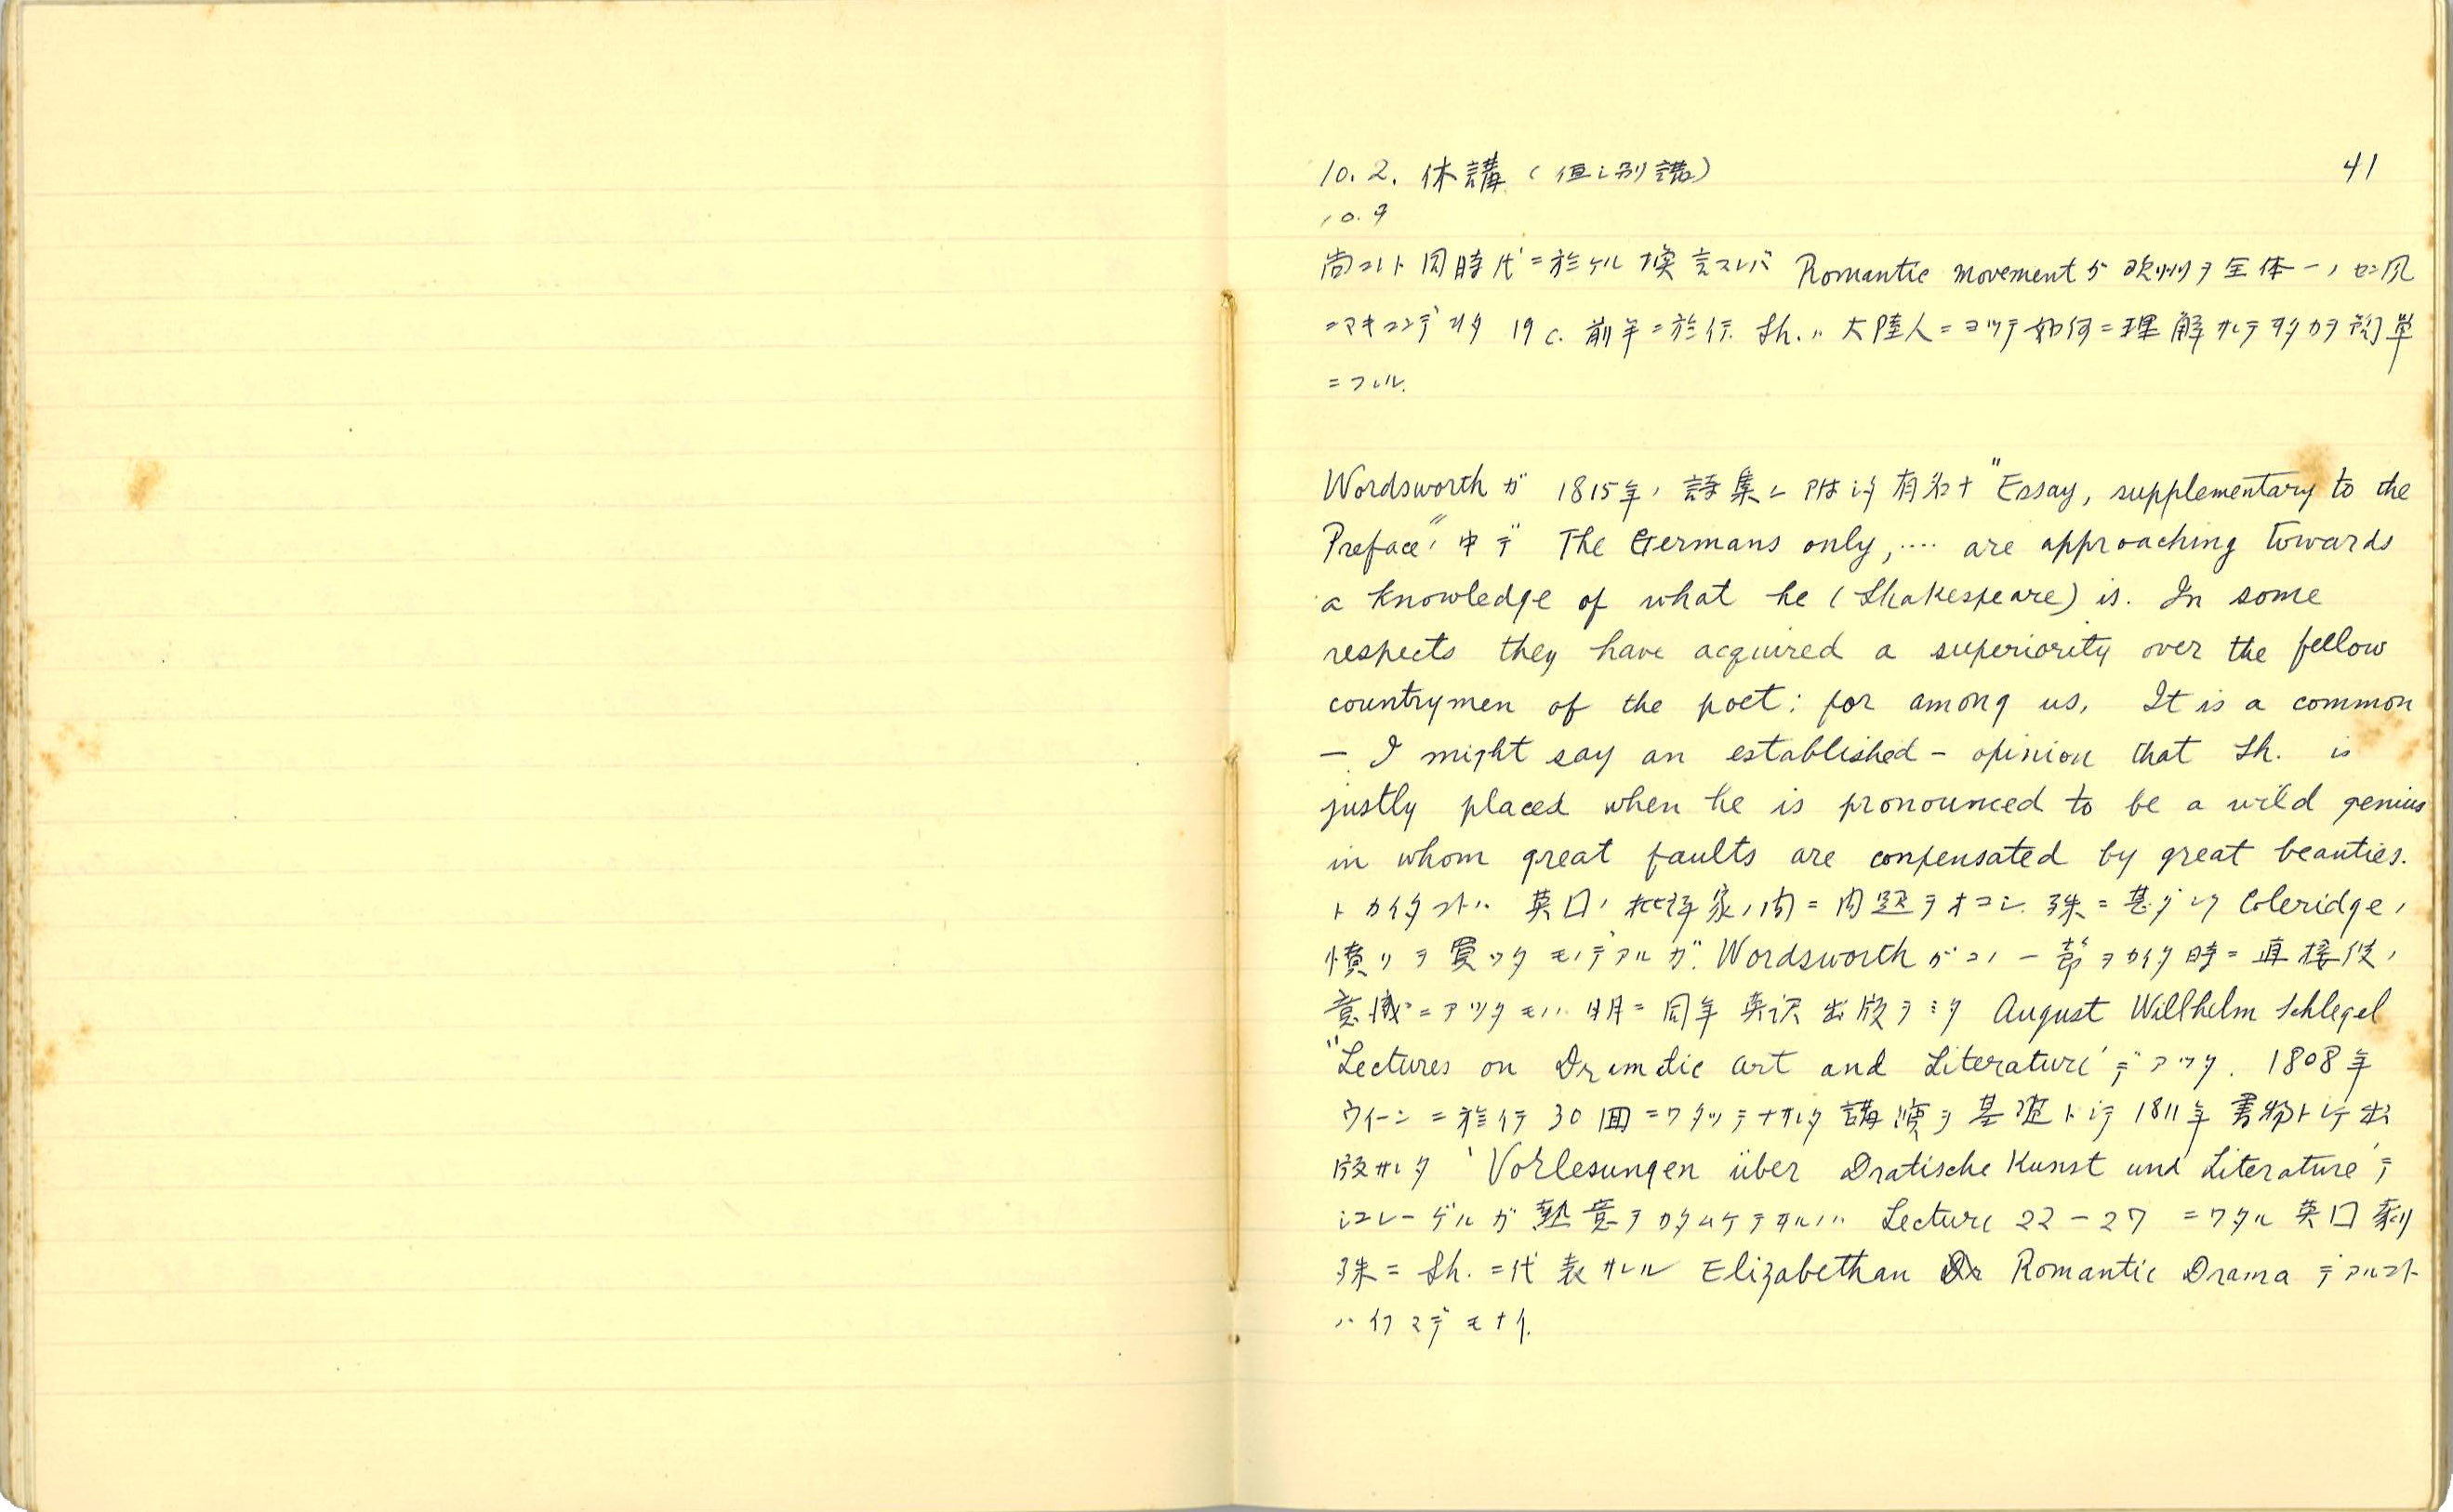 10.2. 休講（但シ別講）
41
10.9
尚コレト同時代ニ於ケル換言スレバ Romantic movement ガ欧州ヲ全体一ノセン風
ニマキコンデヰタ 19 c. 前半ニ於テ Sh. ハ大陸人ニヨツテ如何ニ理解サレテヰタカヲ簡単
ニフレル.
Wordsworth ガ 1815年ノ詩集ニ附シタ有名ナ "Essay, supplementary to the
Preface"ノ中デ The Germans only, .... are approaching towards
a knowledge of what he (Shakespeare) is. In some
respects they have acquired a superiority over the fellow
countrymen of the poet: for among us, It is a common
— I might say an established — opinion that Sh. is
justly placed when he is pronounced to be a wild genius
in whom great faults are conpensated by great beauties.
トカイタコトハ 英国ノ批評家ノ間ニ問題ヲオコシ. 殊ニ甚ダシク Coleridgeノ
憤リヲ買ッタモノデアルガ. Wordsworth ガコノ一節ヲカイタ時ニ直接彼ノ
意識ニアツタモノハ明ニ同年英訳出版ヲミタ August Willhelm Schlegel
"Lectures on Dramatic art and Literature' デアツタ. 1808年
ウィーンニ於テ 30回ニワタッテナサレタ講演ヲ基礎トシテ 1811年書物トシテ出
版サレタ 'Vorlesungen über Dratische Kunst und Literature'デ
シュレーゲルガ熱意ヲカタムケテヰルノハ Lecture 22 - 27 ニワタル英国劇
殊ニ Sh. ニ代表サレル Elizabethan Romantic Drama デアルコト
ハイフマデモナイ.